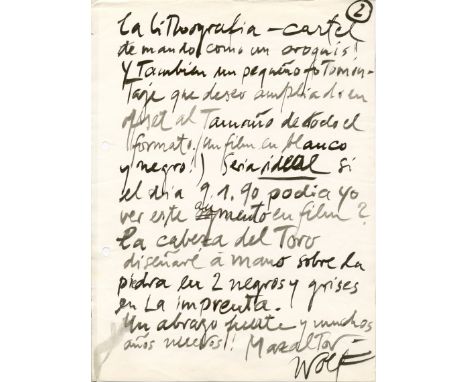 2
La lithografia - cartel
de mando como un croquis!
Y También un pequeño fotomon-
Taje que deseo ampliado en
ofset al Tamaño de todo el
formato. (un film en blanco
y negro!) Seria ideal si
el dia 9.1.90 podia yo
ver este en film?
La cabeza del Toro
diseñaré à mano sobre la
piedra en 2 negros y grises
en La imprenta.
Un abrazo fuerte y muchos
años nuevos!! Mazal Tov
Wolf